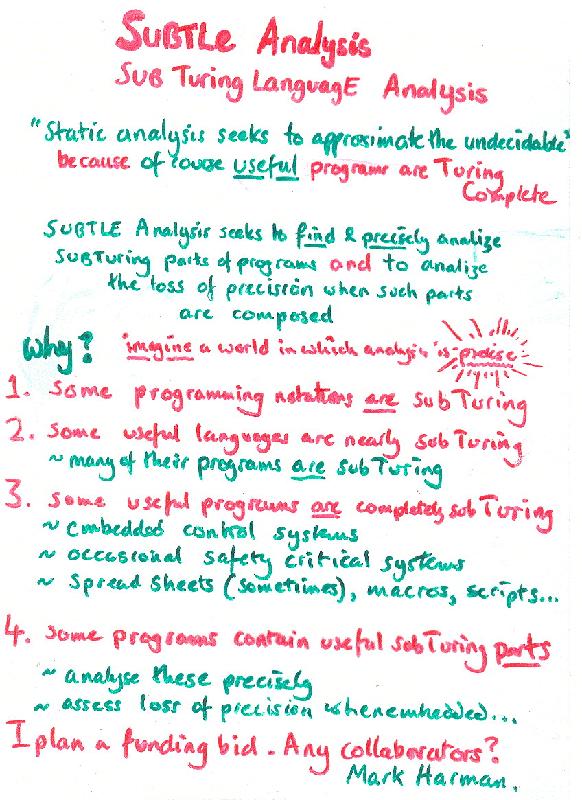 SUBTLE Analysis
SUB Turing LanguagE Analysis
"Static analysis seeks to approximate the undecidable"
because of course useful programs are Turing
Complete
SUBTLE Analysis seeks to find & precisely analize
SUBTuring parts of programs and to analize
the loss of precision when such parts
are composed
Why? imagine a world in which analysis is precise
1. Some programming notations are sub Turing
2. Some useful languages are nearly sub Turing
~ many of their programs are sub Turing
3. Some useful programs are completely sub Turing
~ Embedded control systems
~ occasional safety critical systems
~ Spread Sheets (sometimes), macros, scripts...
4. Some programs contain useful sub Turing parts
~ analyse these precisely
~ assess loss of precision when embedded...
I plan a funding bid. Any collaborators?
Mark Harman.